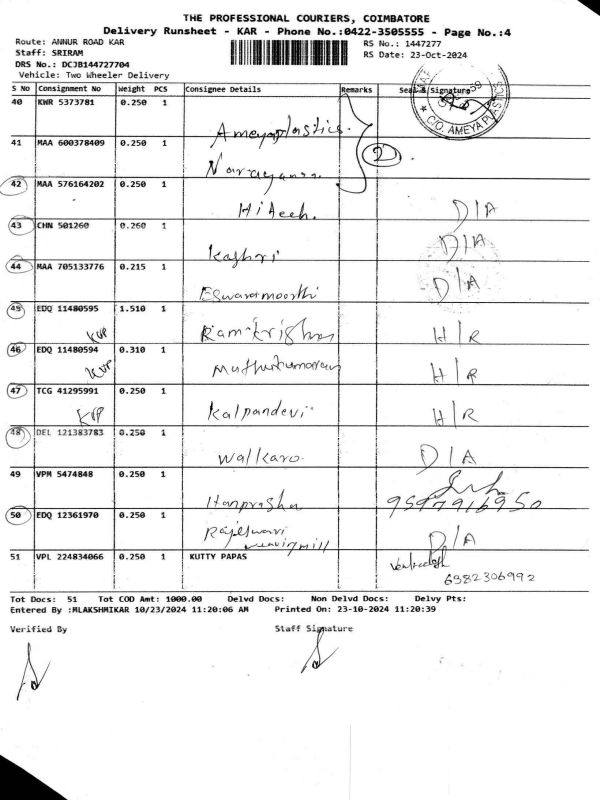 THE PROFESSIONAL COURIERS, COIMBATORE
Delivery Runsheet - KAR - Phone No.:0422-3505555 - Page No.:4
Route: ANNUR ROAD KAR RS No.: 1447277
Staff: SRIRAM RS Date: 23-Oct-2024
DRS No.: DCJB144727704
Vehicle: Two Wheeler Delivery
S No Consignment No Weight PCS Consignee Details Remarks Seal & Signature
C/O. AMEYA PLASTICS
40 KWR 5373781 0.250 1 Ameyaplastics.
2
41 MAA 600378409 0.250 1
42 MAA 576164202 0.250 1 Hitech. D/A
43 CHN 501260 0.260 1 Kashri D/A
44 MAA 705133776 0.215 1 Eswaramoorthi D/A
45 EDQ 11480595 1.510 1 Ramkrishna H/R
KVP
46 EDQ 11480594 0.310 1 Muthukumaran H/R
KVP
47 TCG 41295991 0.250 1 Kalpandevi H/R
KVP
48 DEL 121383783 0.250 1 Walkaro D/A
49 VPM 5474848 0.250 1 9597916950
50 EDQ 12361970 0.250 1 Rajeswari D/A
mill
51 VPL 224834066 0.250 1 KUTTY PAPAS
6382306992
Tot Docs: 51 Tot COD Amt: 1000.00 Delvd Docs: Non Delvd Docs: Delvy Pts:
Entered By :MLAKSHMIKAR 10/23/2024 11:20:06 AM Printed On: 23-10-2024 11:20:39
Verified By Staff Signature